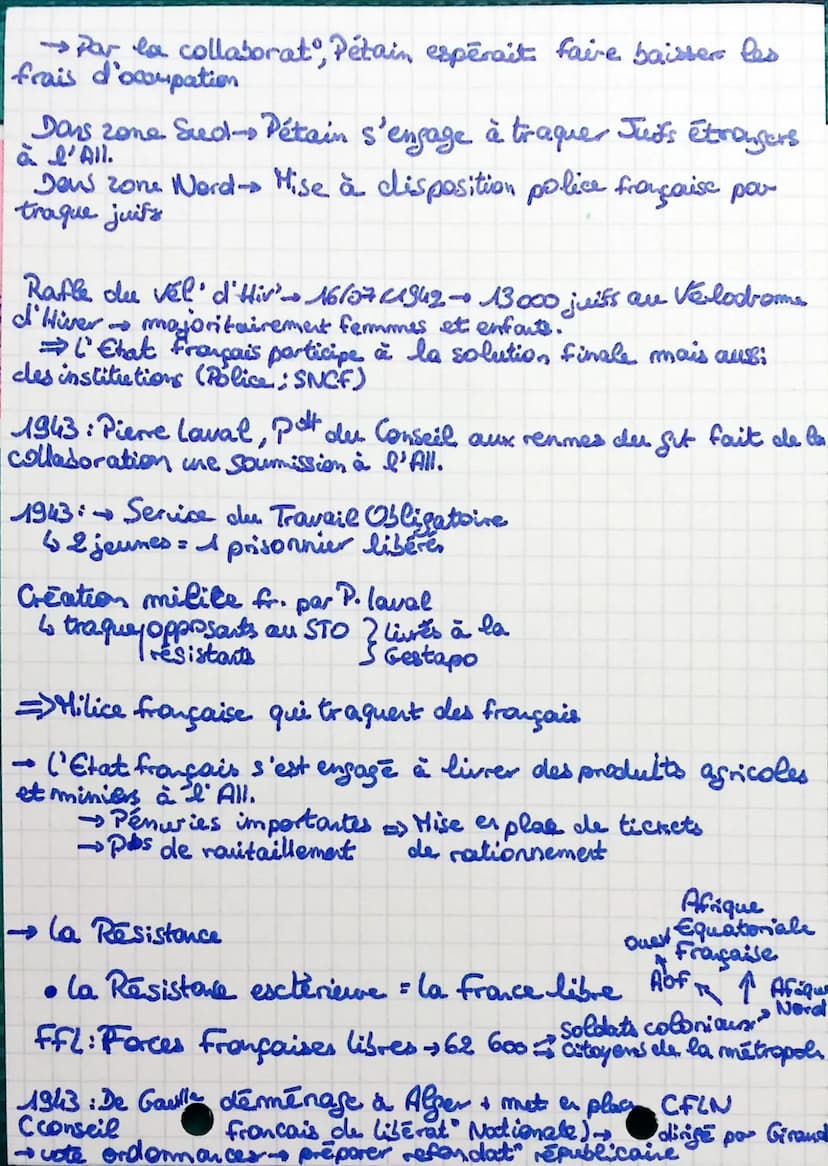 → Par la collaborat°, Pétain espérait faire baisser les
frais d'occupation
Dans zone Sud → Pétain s'engage à traquer Juifs étrangers
à l'All.
Dans zone Nord → Mise à disposition police française pour
traque juifs
Rafle du Vél' d'Hiv' → 16/07/1942 → 13 000 juifs au Vélodrome
d'Hiver → majoritairement femmes et enfants.
⇒ L'Etat français participe à la solution finale mais aussi
des institutions (Police ; SNCF)
1943 : Pierre Laval, Pdt du Conseil aux rennes du gvt fait de la
collaboration une soumission à l'All.
1943 : → Service du Travail Obligatoire
↳ 2 jeunes = 1 prisonnier libérés
Création milice fr. par P. Laval
↳ traque opposants au STO } livrés à la
résistants } Gestapo
⇒ Milice française qui traquent des français
→ L'Etat français s'est engagé à livrer des produits agricoles
et miniers à l'All.
→ Pénuries importantes ⇒ Mise en place de tickets
→ Pbs de ravitaillement de rationnement
→ La Résistance
Afrique
Equatoriale
Ouest Française
• La Résistance extérieure = la France libre
AOF ↖ ↑ Afrique
Nord
FFL : Forces Françaises Libres → 62 600 soldats coloniaux
citoyens de la métropole
1943 : De Gaulle déménage à Alger + met en place CFLN
(conseil français de libérat° Nationale) → dirigé par Giraud
→ vote ordonnances → préparer refondat° républicaine